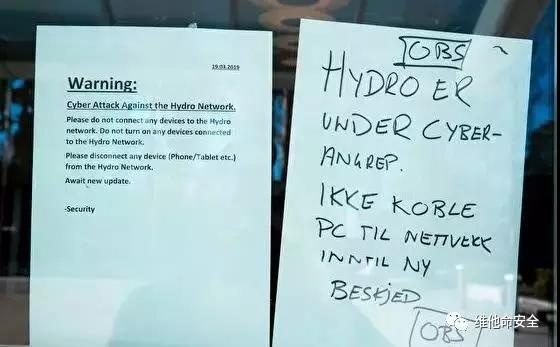 19.03.2019
Warning:
Cyber Attack Against the Hydro Network.
Please do not connect any devices to the Hydro
network. Do not turn on any devices connected
to the Hydro Network.
Please disconnect any device (Phone/Tablet etc.)
from the Hydro Network.
Await new update.
-Security
OBS
HYDRO ER
UNDER CYBER-
ANGREP.
IKKE KOBLE
PC TIL NETTVERK
INNTIL NY
BESKJED
OBS
维他命安全